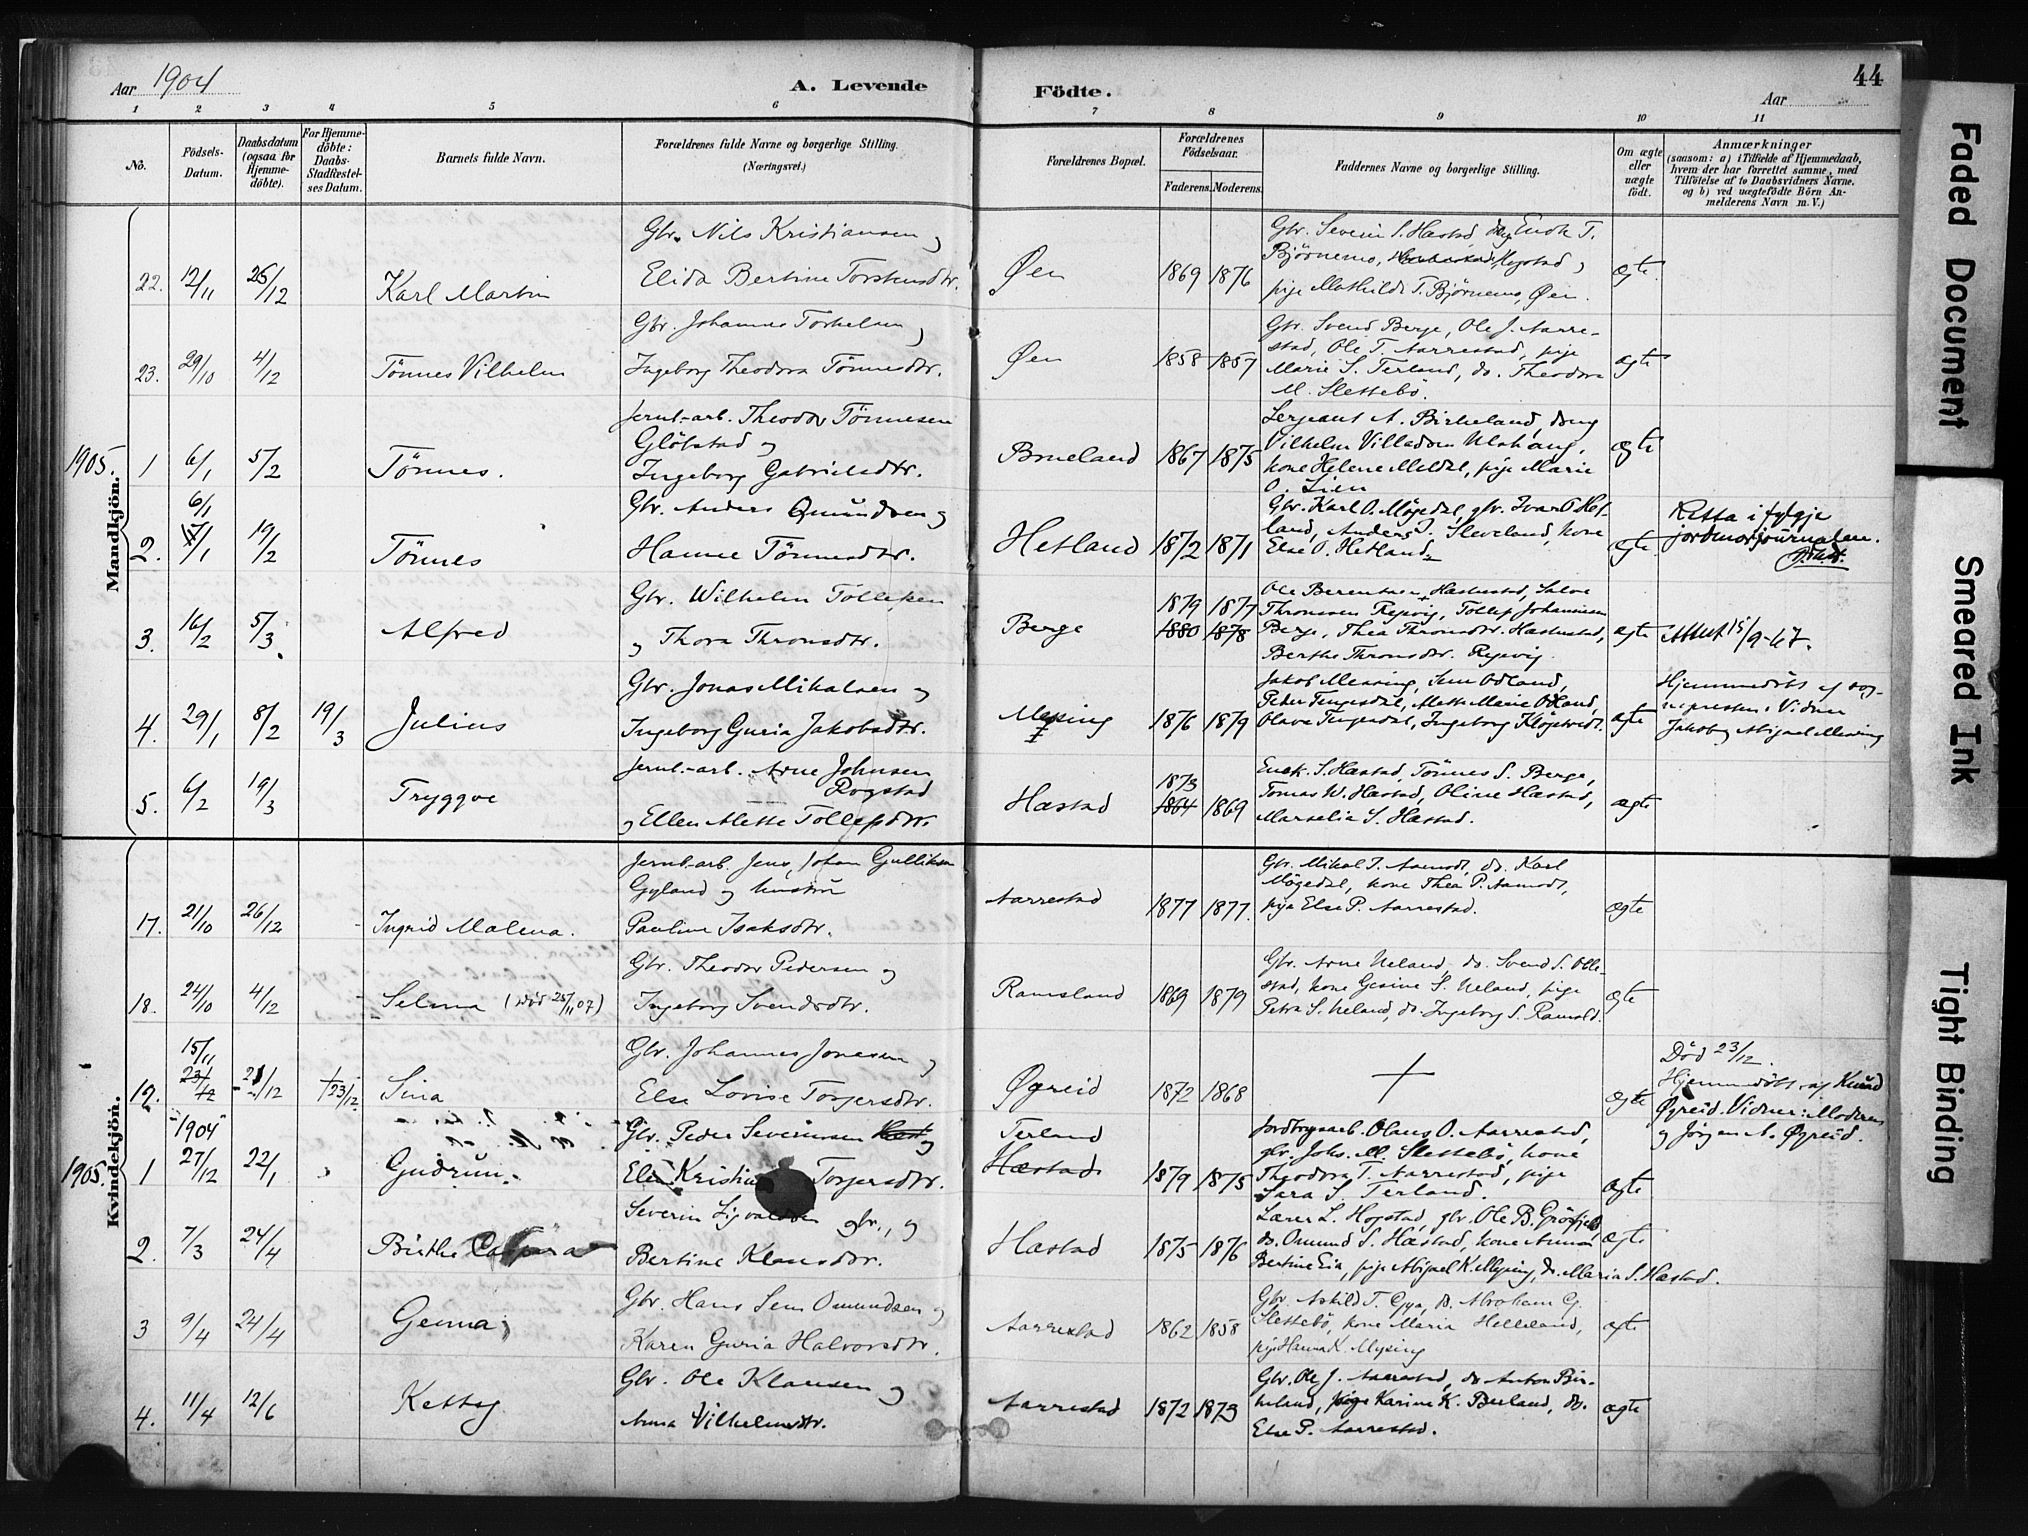 Aar 1904
A. Levende Födte.
44
Aar
1 2 3 4 5 6 7 8 9 10 11
No.
Födsels-Datum.
Daabsdatum (ogsaa for Hjemme-döbte).
For Hjemme-döbte: Daabs-Stadfæstel-ses Datum.
Barnets fulde Navn.
Forældrenes fulde Navne og borgerlige Stilling. (Næringsvei.)
Forældrenes Bopæl.
Forældrenes Födselsaar.
Faderens. Moderens.
Faddernes Navne og borgerlige Stilling.
Om ægte eller uægte födt.
Anmærkninger
(saasom: a) i Tilfælde af Hjemmedaab, hvem der har forrettet samme, med Tilföielse af to Daabsvidners Navne. og b) ved uægtefödte Börn An-melderens Navn m. V.)
Mandkjön.
22. 12/11 26/12 Karl Martin
Gbr. Nils Kristiansen og
Elida Bertine Torstensdtr.
Øen 1869 1876
Gbr. Severin S. Hæstad, Enok T.
Bjørnemo, Hogstad,
pige Mathilde T. Bjørnemo, Øen.
ægte
23. 29/10 4/12 Tönnes Vilhelm
Gbr. Johannes Torkelsen og
Ingeborg Theodora Tönnesdtr.
Øen 1858 1857
Gbr. Svend Berge, Ole J. Aarre-
stad, Ole T. Aarrestad, pige
Marie S. Terland, do. Theodora
M. Slettebö.
ægte
1905.
1 6/1 5/2 Tönnes.
Jernb.-arb. Theodor Tönnesen
og
Ingeborg Gabrielsdtr.
Brueland 1867 1875
Sergeant A. Birkeland,
Vilhelm Villadsen
kone Helene Meldal, pige Marie
O. Lien
ægte
2. 6/1 19/2 Tönnes
Gbr. Anders Omundsen og
Hanne Tönnesdtr.
Hetland 1872 1871
Gbr. Karl O. Mögedal, gbr. Ivar T. Het-
land, Anders S. Sleveland, kone
Else O. Hetland
ægte
Retta i fylgje
jordmorjournalen.
3. 16/2 5/3 Alfred
Gbr. Wilhelm Tollefsen
og Thora Thronsdtr.
Berge 1879 1877
1880 1878
Ole Berentsen Hæstad, Salve
Thronsen Regevig, Tollef Johannesen
Berge, Thea Thronsdtr. Hæstad,
Berthe Thronsdtr. Regevig
ægte
Attest 15/9-67.
4. 29/1 8/2 19/3 Julius
Gbr. Jonas Mikalsen og
Ingeborg Guria Jakobsdtr.
Mysing 1876 1879
Jakob Mysing, Sem Odland,
Peder Tengesdal, Mette Marie Odland,
Olava Tengesdal, Ingeborg
ægte
Hjemmedöbt af sog-
nepresten. Vidner
Jakob og Abigael Mysing
5. 6/2 19/3 Tryggve
Jernb.-arb. Arne Johnsen
Rogstad
og Ellen Alette Tollefsdtr.
Hæstad 1873 1869
1864
Enok S. Hæstad, Tönnes S. Berge,
Tomas W. Hæstad, Oline Hæstad,
Marselia S. Hæstad.
ægte
Kvindekjön.
17. 21/10 26/12 Ingrid Malena.
Jernb.-arb. Jens Johan Gulliksen
Gyland og hustru
Pauline Isaksdtr.
Aarrestad 1877 1877.
Gbr. Mikal T. Aamodt, do. Karl
Mögedal, kone Thea P. Aamodt,
pige Else P. Aarrestad.
ægte
18. 24/10 4/12 Selma (död 25/11 07)
Gbr. Theodor Pedersen og
Ingeborg Svendsdtr.
Ramsland 1869 1879
Gbr. Arne Ueland, do. Svend S. Olle-
stad, kone Gesine S. Ueland, pige
Petra S. Ueland, do. Ingeborg S. Ramsld.
ægte
19. 15/11 21/12 †23/12 Sina
Gbr. Johannes Jonassen og
Else Lovise Torgersdtr.
Øgreid 1872 1868
ægte
Död 23/12.
Hjemmedöbt af Knud
Øgreid. Vidner: Moderen
og Jörgen A. Øgreid.
1905.
1 1904 27/12 22/1 Gudrun
Gbr. Peder Severinsen og
Torgersdtr.
Terland
Hæstad 1879 1875
Jordbrugsarb. Olaus O. Aarrestad,
gbr. Johs. M. Slettebö, kone
Theodora T. Aarrestad, pige
Sara S. Terland.
ægte
2. 7/3 24/4 Birthe
Severin Sigvaldsen gbr., og
Bertine Klausdtr.
Hæstad 1875 1876
Lærer L. Hogstad, gbr. Ole B. Grösfjeld,
do. Omund S. Hæstad, kone Anna
Bertine Eia, pige Abigael K. Mysing, do. Maria S. Hæstad.
ægte
3 9/4 24/4 Gemma
Gbr. Hans Sem Omundsen og
Karen Guria Halvorsdtr.
Aarrestad 1862 1858
Gbr. Askild T. Gya, do. Abraham G.
Slettebö, kone Maria Helleland,
pige Hanna K. Mysing
ægte
4. 11/4 12/6 Kettsy
Gbr. Ole Klausen og
Anna Vilhelmsdtr.
Aarrestad 1872 1873
Gbr. Ole J. Aarrestad, do. Anton Bir-
keland, pige Karine K. Birkeland, do.
Else P. Aarrestad.
ægte
Faded Document
Smeared Ink
Tight Binding